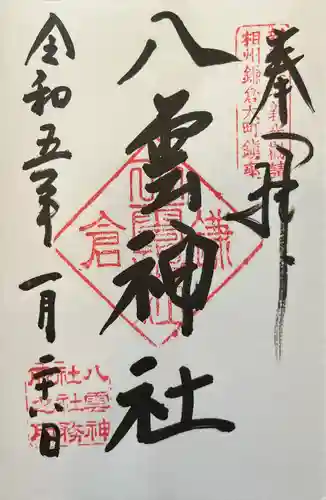 奉拝
相州鎌倉大町鎮座
八雲神社
鎌倉
八雲神
社社務
令和五年一月二十八日